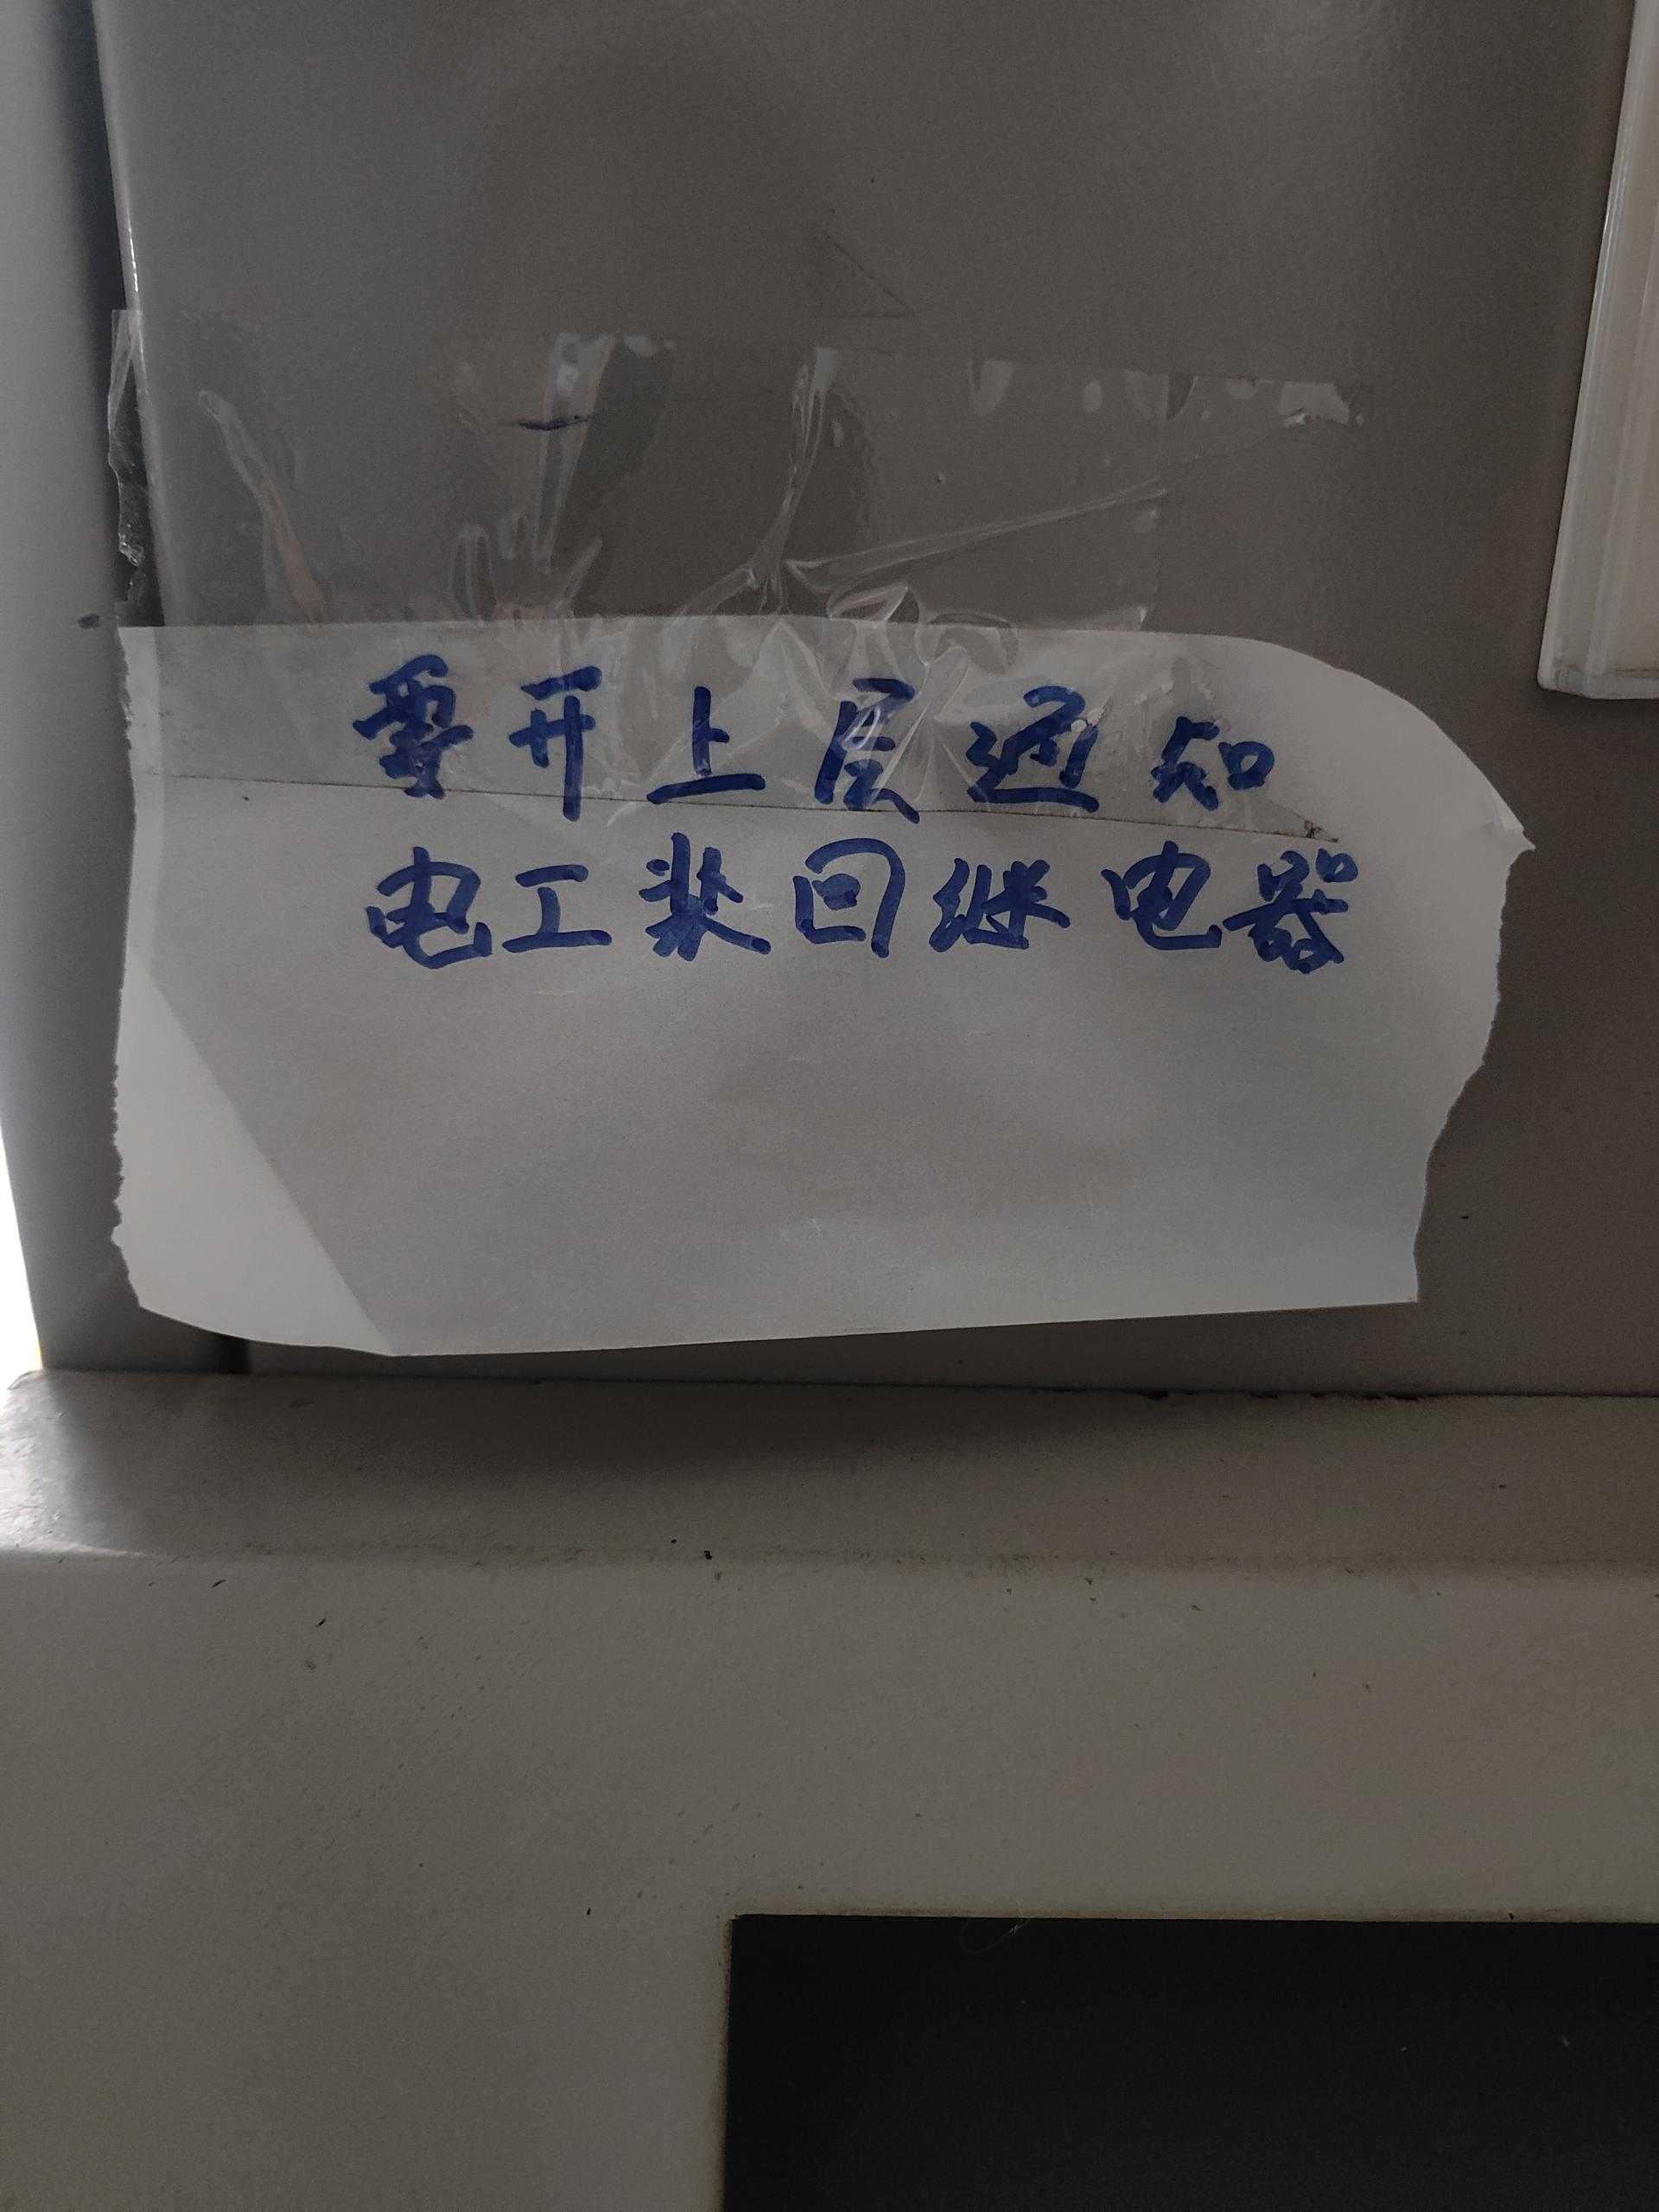 要开上层通知
电工装回继电器